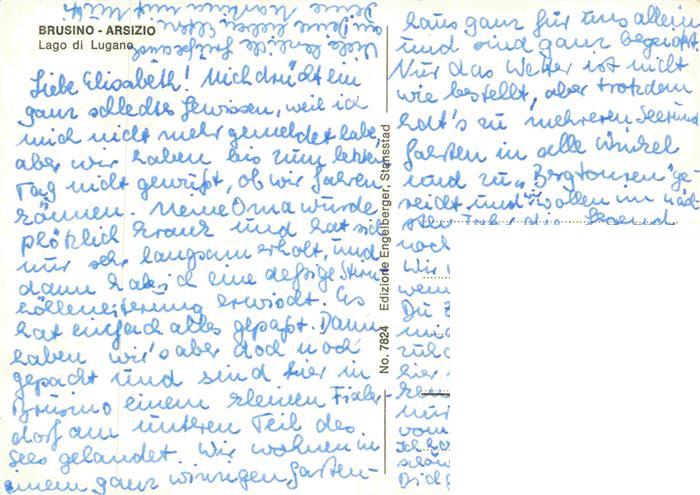 BRUSINO - ARSIZIO
Lago di Lugano
Liebe Elisabeth! Mich drückt ein
ganz schlechtes Gewissen, weil ich
mich nicht mehr gemeldet habe,
aber wir haben bis zum letzten
Tag nicht gewußt, ob wir fahren
können. Meine Oma wurde
plötzlich krank und hat sich
nur sehr langsam erholt, und
dann hab ich eine deftige Stirn-
höhleneiterung erwischt. Es
hat einfach alles gepaßt. Dann
haben wir's aber doch noch
gepackt und sind hier in
Brusino einem kleinen Fischer-
dorf am unteren Teil des
Sees gelandet. Wir wohnen in
einem ganz winzigen Garten-
No. 7824 Edizione Engelberger, Stansstad
haus ganz für uns allein
und sind ganz begeistert
Nur das Wetter ist nicht
wie bestellt, aber trotzdem
hat's zu mehreren Seerund
fahrten in alle Winkel
und zu "Bergtouren" ge-
reicht und wir wollen im näch-
sten Jahr die Gegend
noch
Wir
wenn
Du
mi
zuh
hier
nur
vom
Ich h
schön
Dich
Viele
an Deine lieben Eltern
Deine